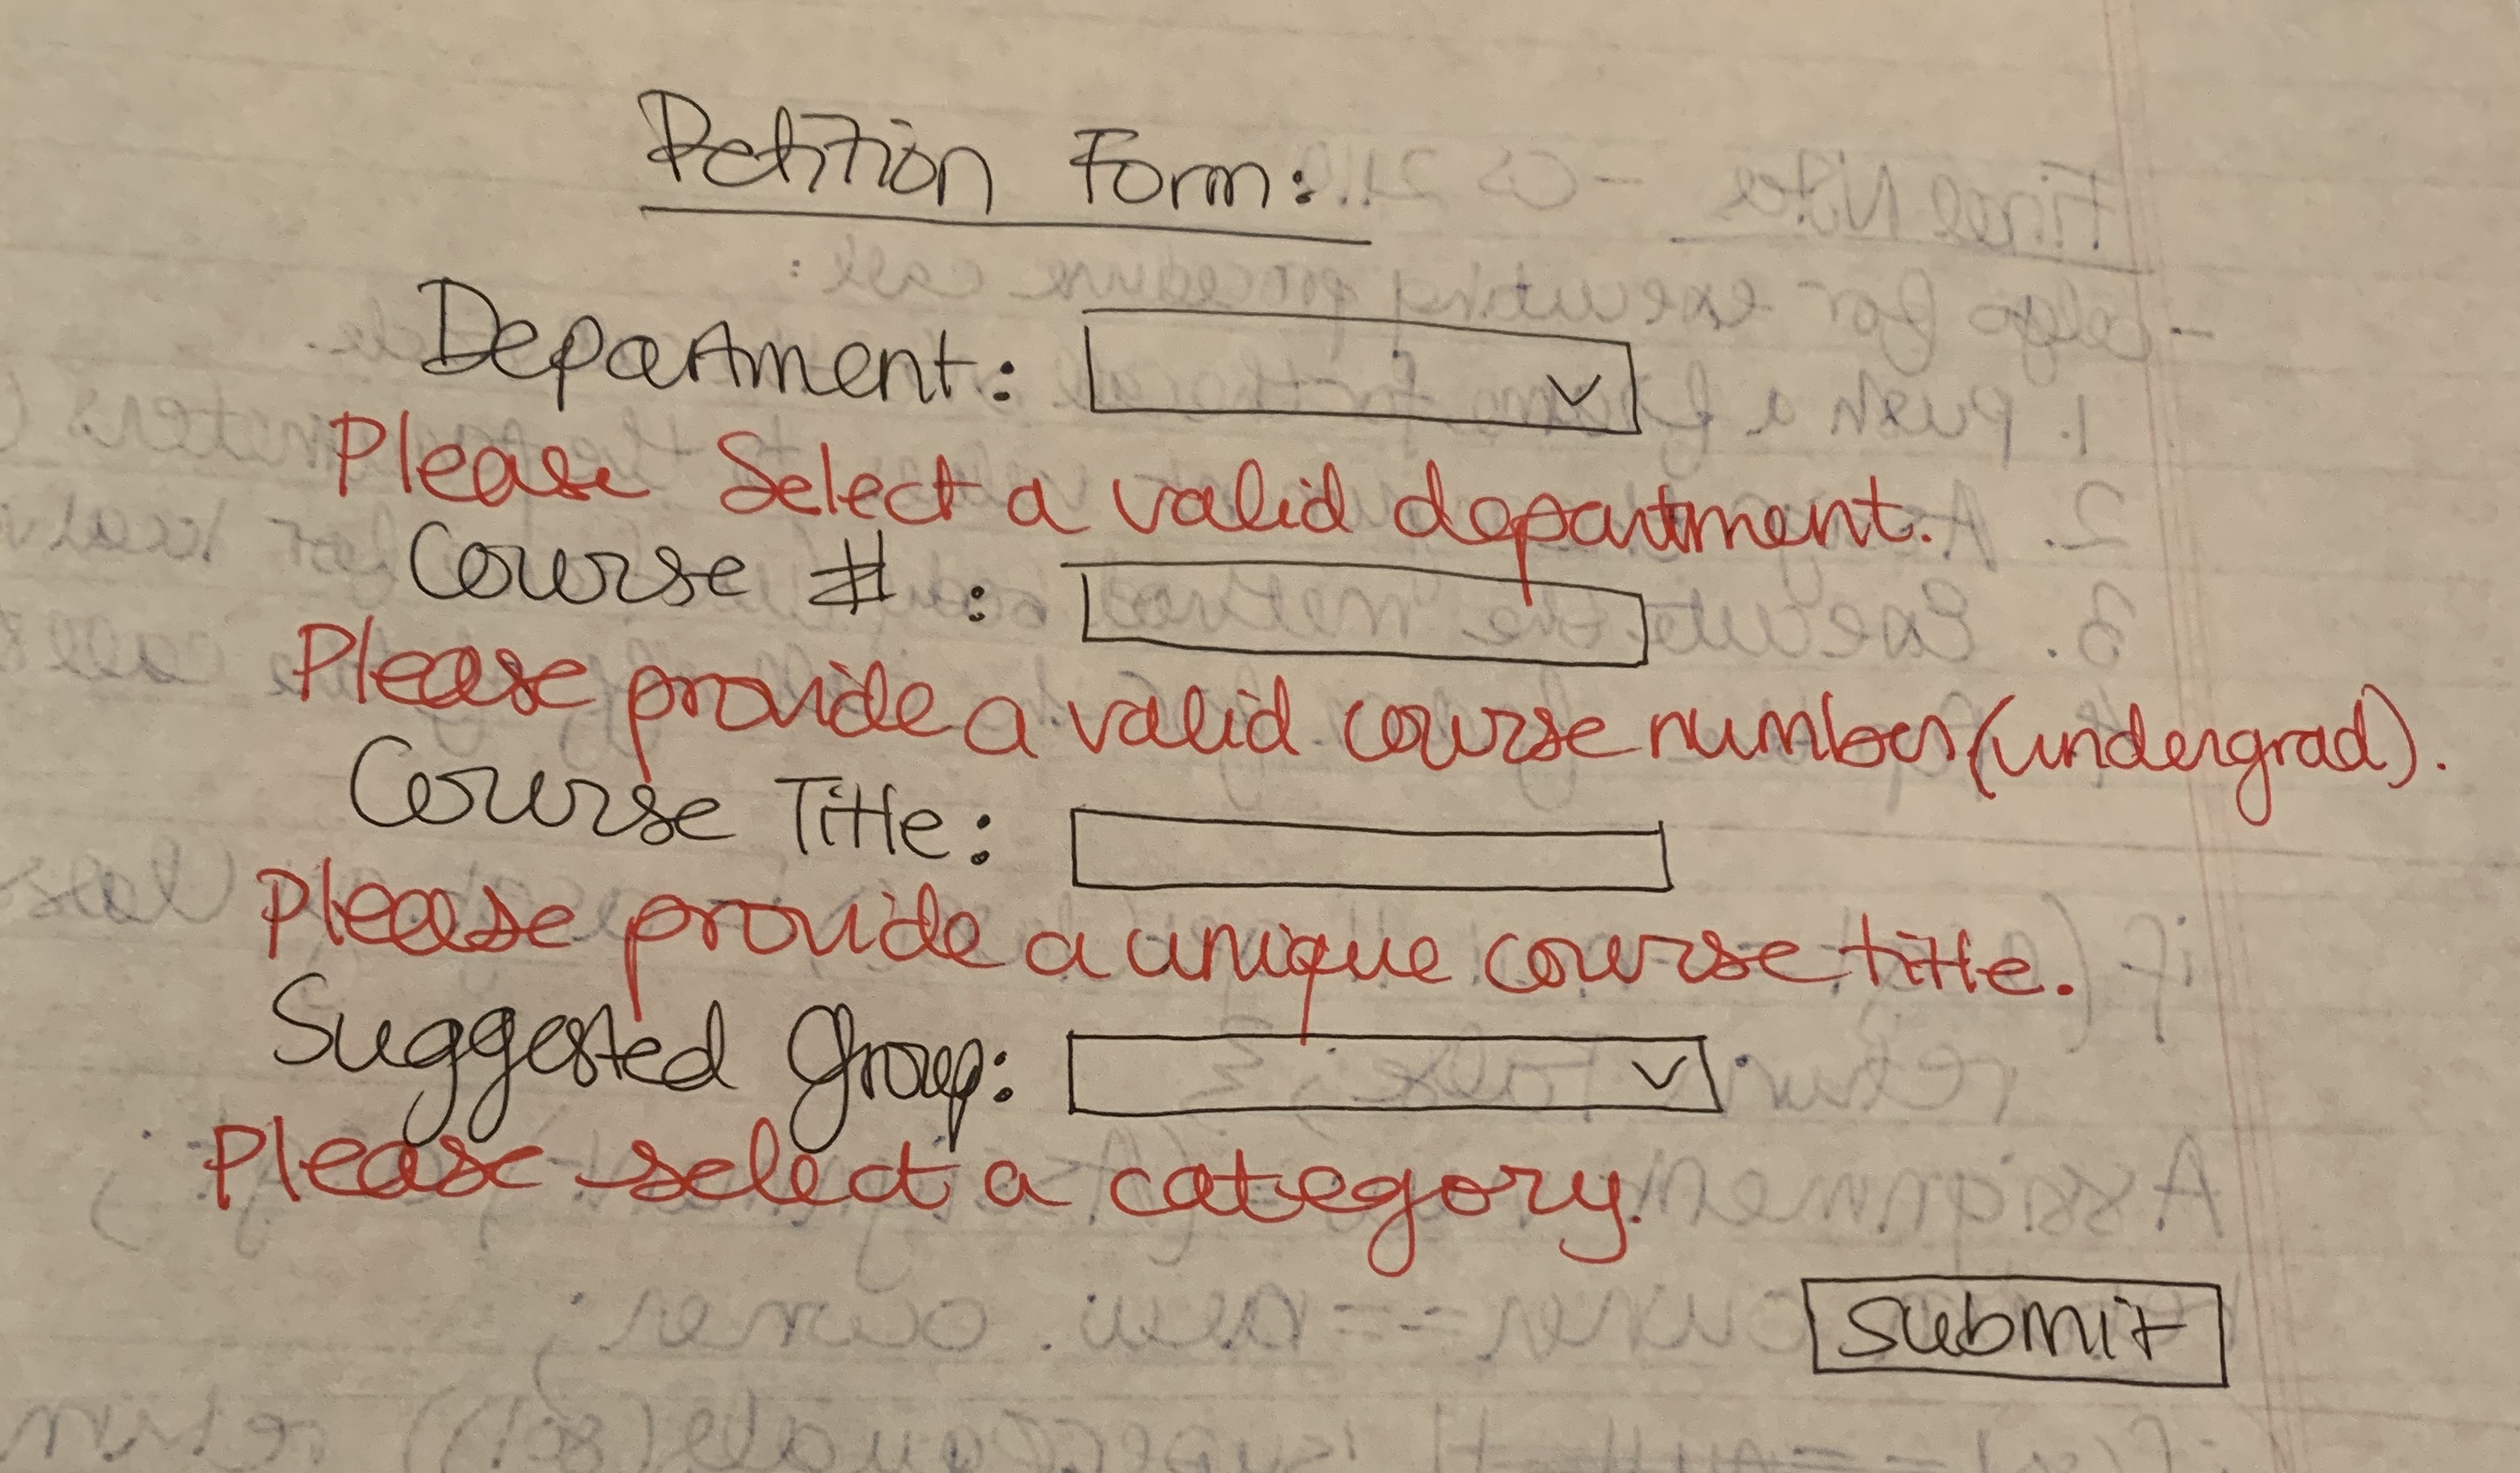 Petition Form:
Department:
Please Select a valid department.
Course # :
Please provide a valid course number (undergrad).
Course Title:
Please provide a unique course title.
Suggested Group:
Please select a category.
Submit